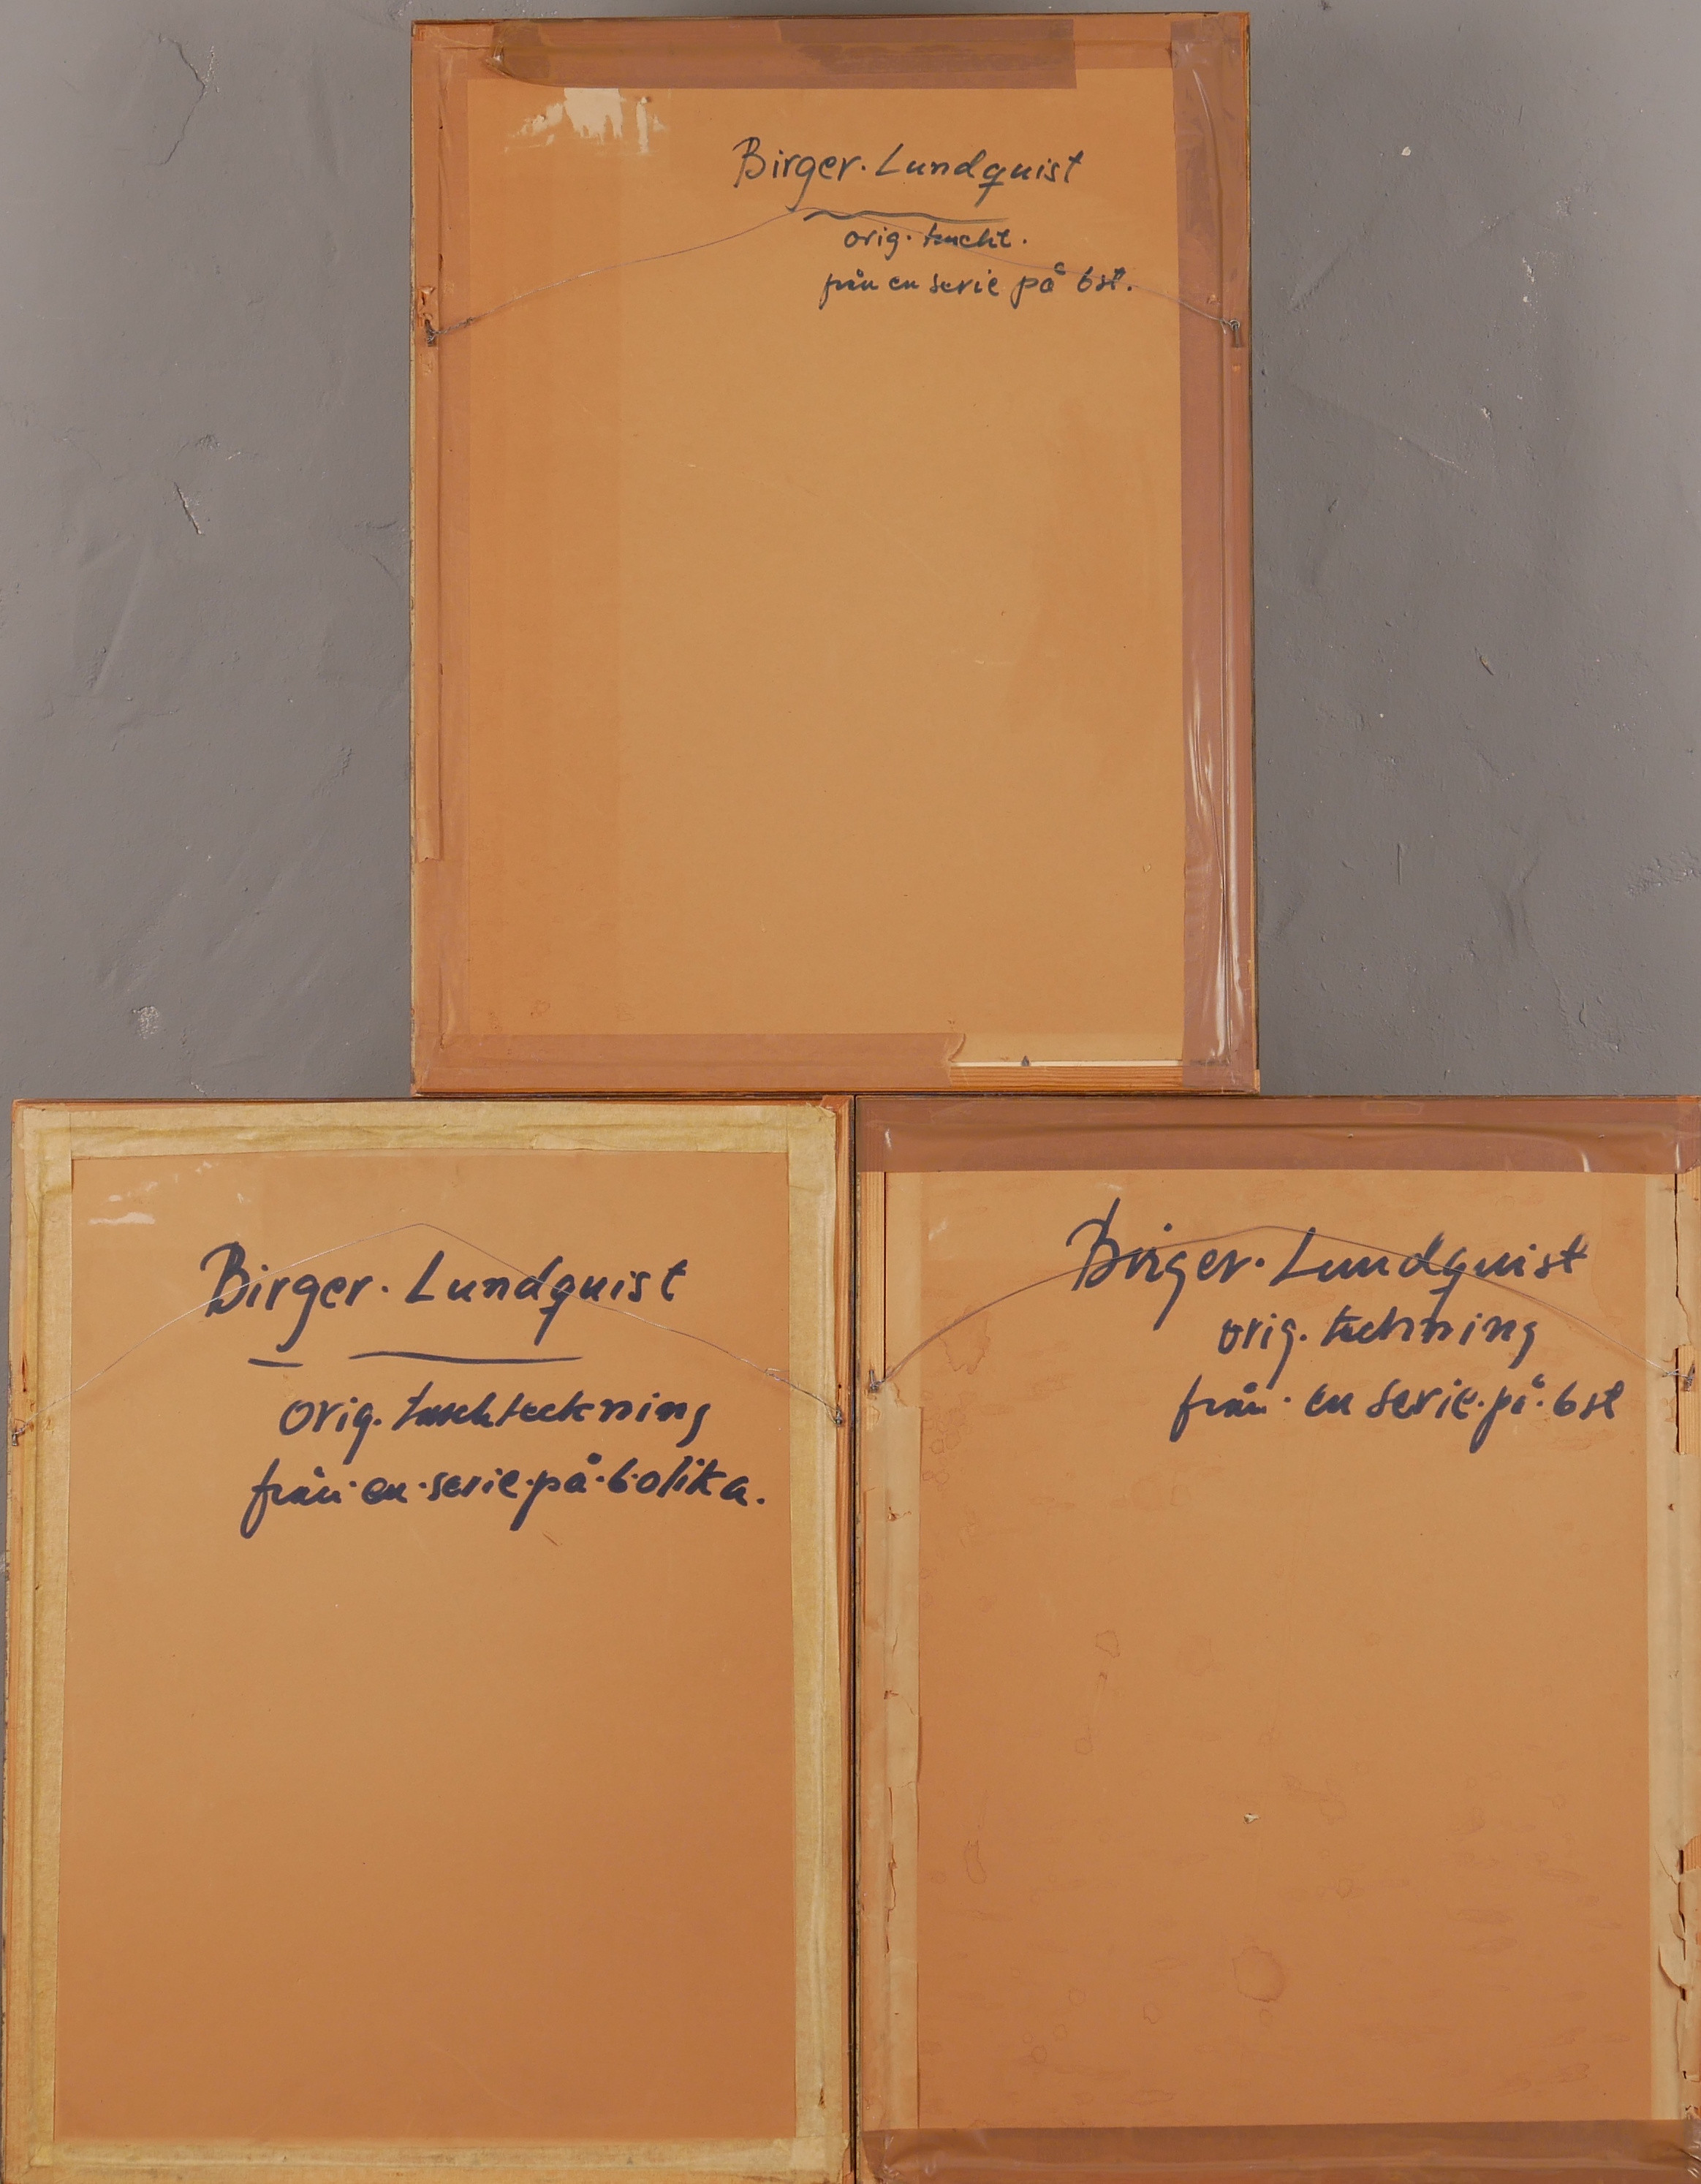 Birger. Lundquist
orig.
från en serie på 6st.
Birger. Lundquist
orig. tuschteckning
från. en. serie. på. 6. olika.
Birger. Lundquist
orig. teckning
från. en serie. på. 6st